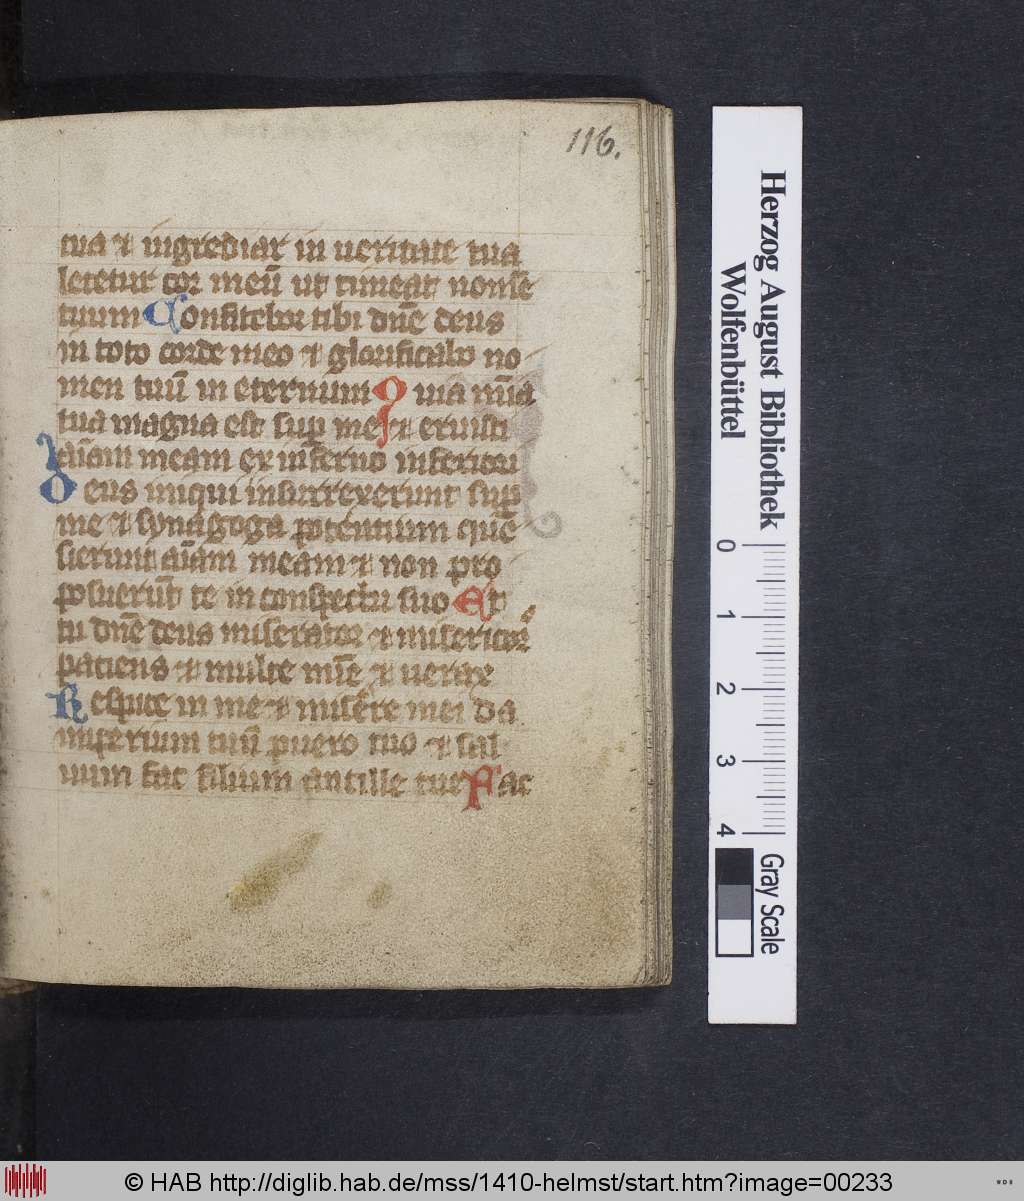 116.
tua et ingrediar in ueritate tua
letetur cor meū ut timeat nomē
tuum Confitebor tibi dn̄e deus
in toto corde meo et glorificabo no
men tuū in eternum Quia mīa
tua magna est sup me et eruisti
aīam meam ex inferno inferiori
Deus iniqui insurrexerunt sup
me et synagoga potentium que
sierunt aīam meam et non pro
posuerūt te in conspectu suo Et
tu dn̄e deus miserator et misericor
paciens et multe mīe et uerax
Respice in me et miserere mei da
imperium tuū puero tuo et sal
uum fac filium ancille tue Fac
Herzog August Bibliothek
Wolfenbüttel
0 1 2 3 4
Gray Scale
© HAB http://diglib.hab.de/mss/1410-helmst/start.htm?image=00233